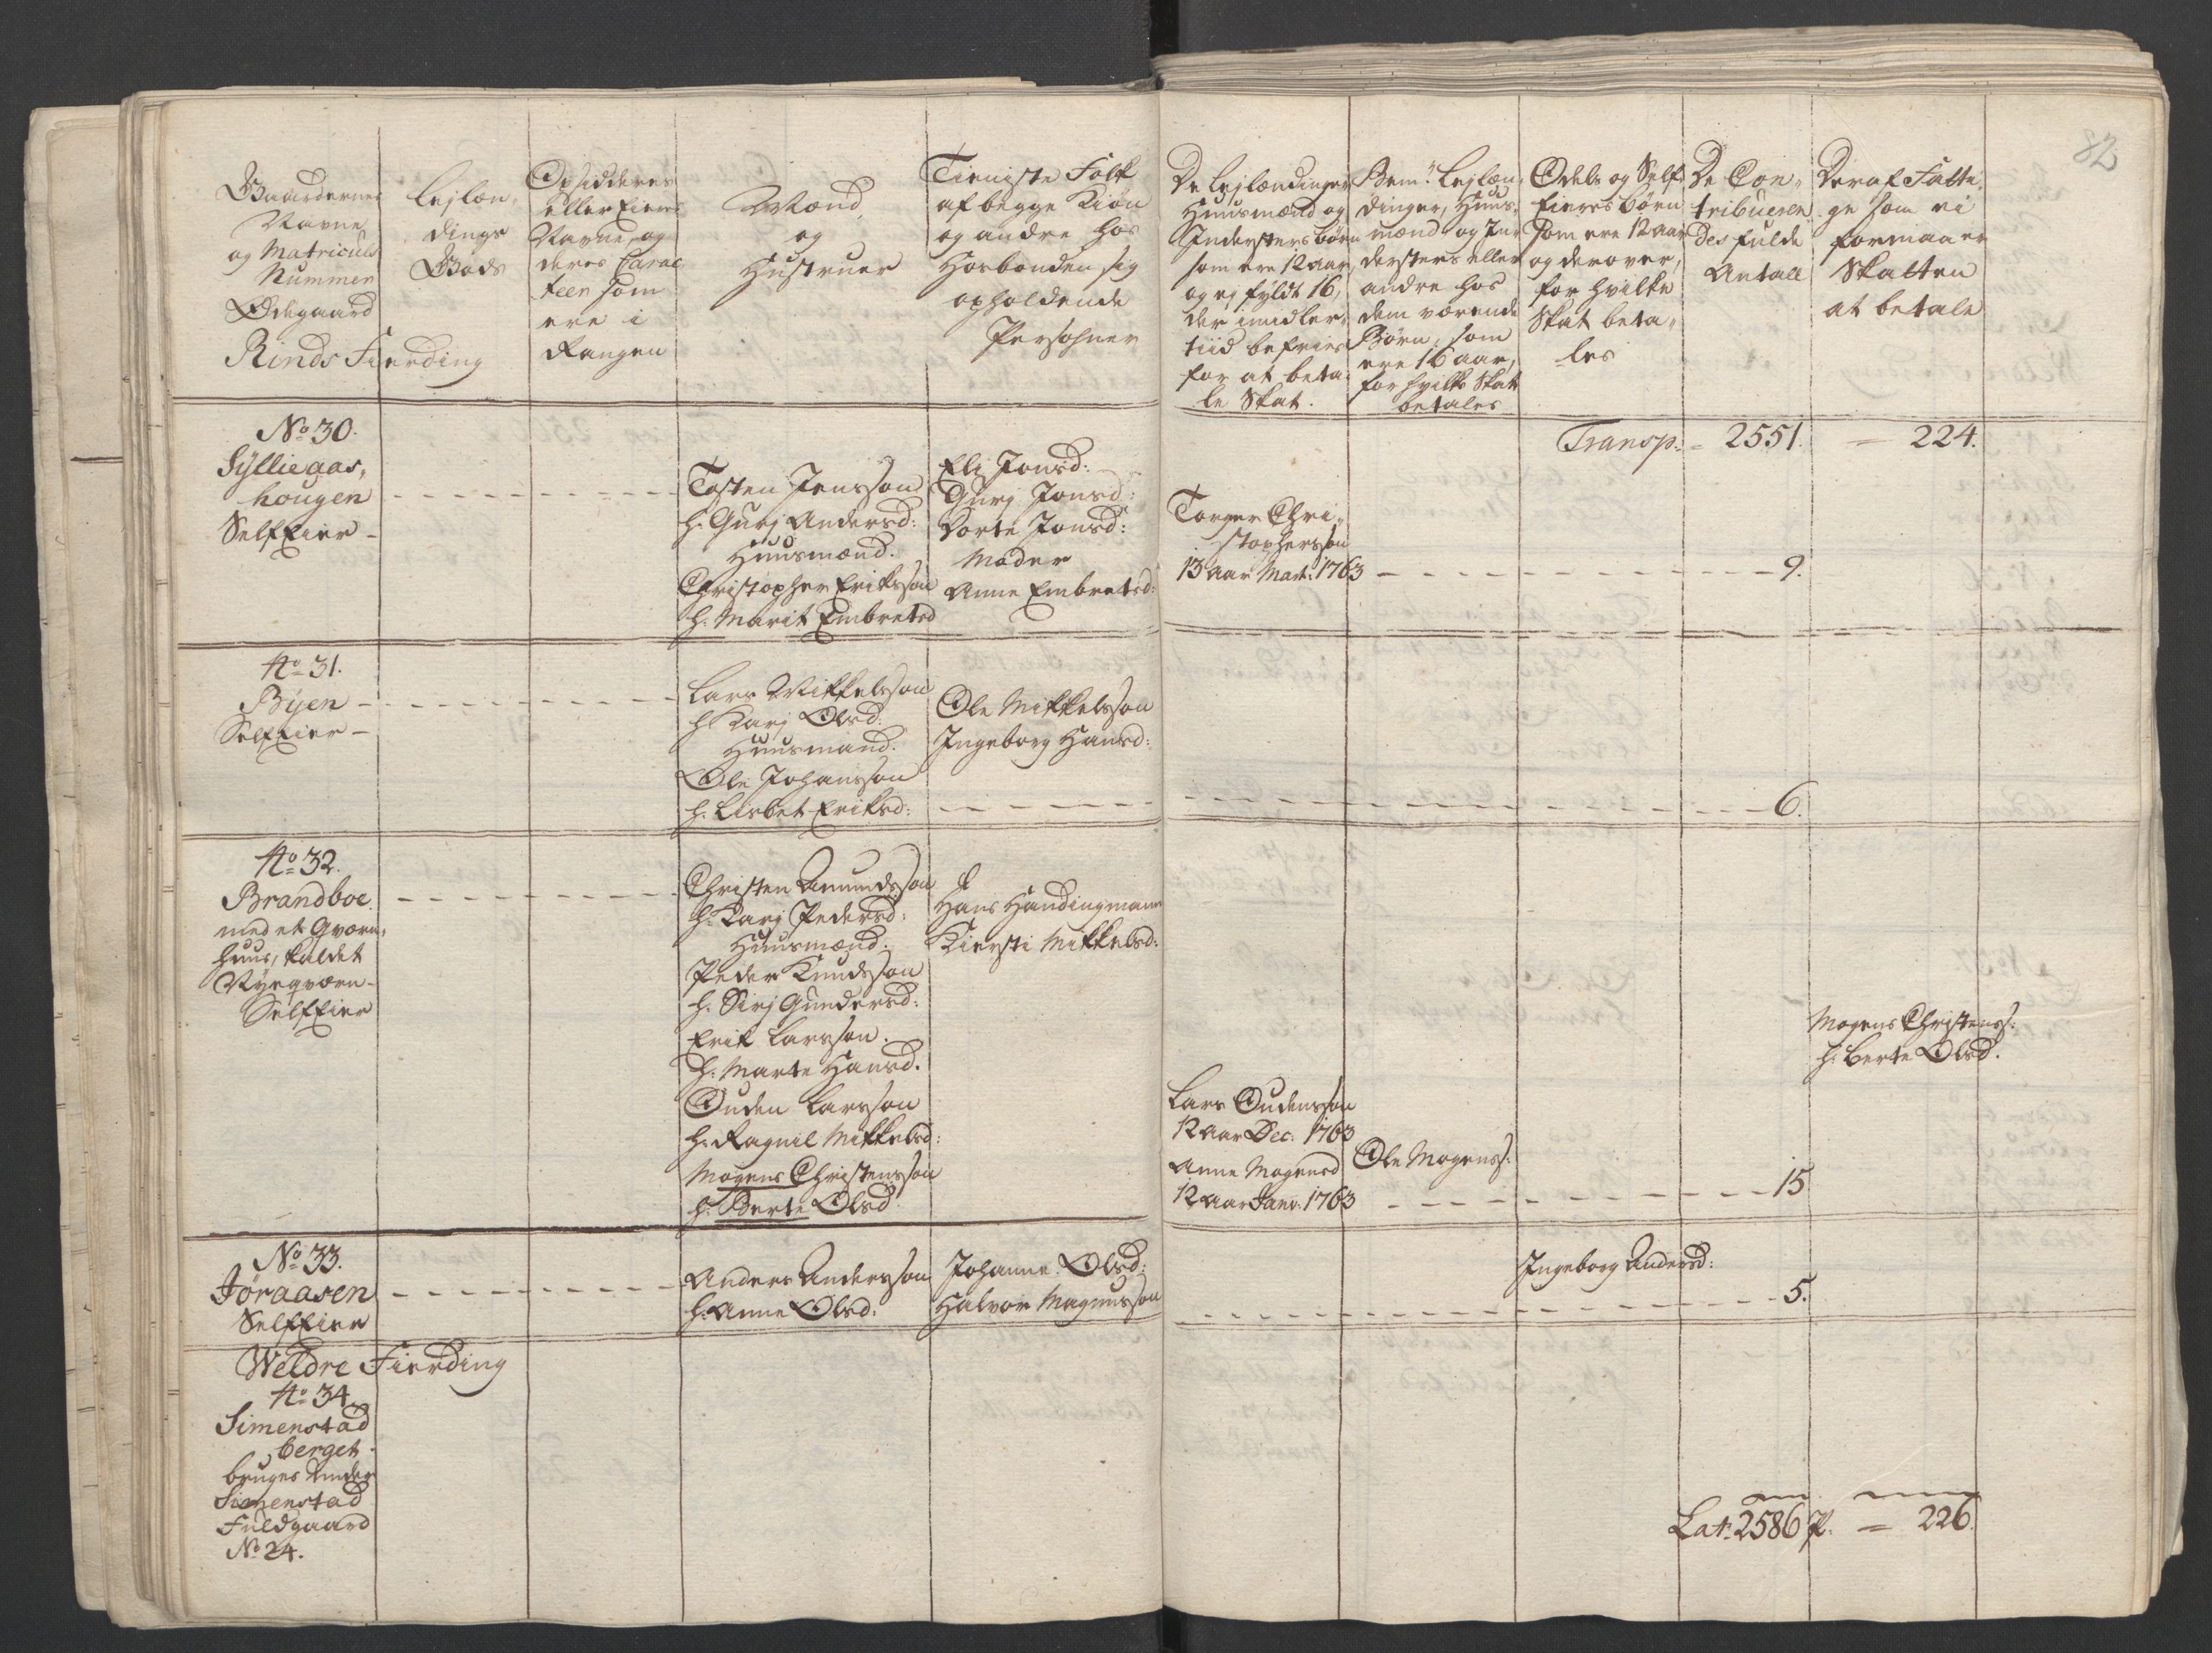 82
Gaardernes
Navne
og Matriculs
Nummer
Ødegaard
Rinds Fierding
Lejlæn-
dings
Gods
Opsidderes
eller Eieres
Navne, og
deres Carac
teer som
ere i
Rangen
Mænd,
og
Hustruer
Tieniste Folk
af begge Kiøn
og andre hos
Hosbonden sig
opholdende
Persohner
De Lejlændinger
Huusmænd og
Indersters børn
som ere 12 aar,
og ej fyldt 16,
der imidler-
tiid befries
for at beta-
le Skat.
Bem.te Lejlæn-
dinger, Huus-
mænd og Ind
dersters eller
andre hos
dem værende
Børn, som
ere 16 aar,
for hvilke Skatt
betales
Odels og Self
Eieres børn
som ere 12 aar
og derover,
for hvilke
Skat beta-
les
De Con-
tribueren
des fulde
Antall
Deraf Fatti-
ge som ei
formaaer
Skatten
at betale
Transp: - 2551. — 224.
No 30.
Syllieaas,
hougen
SelfEier -
Tosten Jensson
h. Gurj Andersd:
Huusmænd.
Christopher Eriksson
h. Marit Embretsd
Eli Jonsd:
Gurj Jonsd:
Dorte Jonsd:
Moder
Anne Embretsd:
Torger Chri-
stophersson
13 Aar Mart: 1763 - - - 9.
No 31.
Byen -
SelfEier -
Lars Mikkelsson
h. Karj Olsd:
Huusmand.
Ole Johansson
h. Lisbet Eriksd:
Ole Mikkelsson
Ingeborg Hansd:
6.
No 32.
Brandboe.
med et Qværn,
huus, kaldet
Nyeqværn-
SelfEier
Christen Amundsson
h. Karj Pedersd:
Huusmænd.
Peder Knudsson
h. Sirj Gundersd:
Erik Larsson.
h. Marte Hansd.
Ouden Larsson
h. Ragnil Mikkelsd:
Mogens Christensson
h. Berte Olsd.
Hans Handingmann
Kiersti Mikkelsd:
Lars Oudensson
12 Aar Dec: 1763
Anne Mogensd
12 Aar Janv. 1763
Ole Mogenss:
15
Mogens Christenss:
h. Berte Olsd.
No 33.
Jøraasen
SelfEier
Anders Andersson
h. Anne Olsd:
Johanne Olsd:
Halvor Magnusson
Ingeborg Andersd:
5.
Weldre Fierding
No 34
Simenstad
berget.
bruges under
Simenstad
Fuldgaard
No 24.
Lat: 2586 P. — 226.